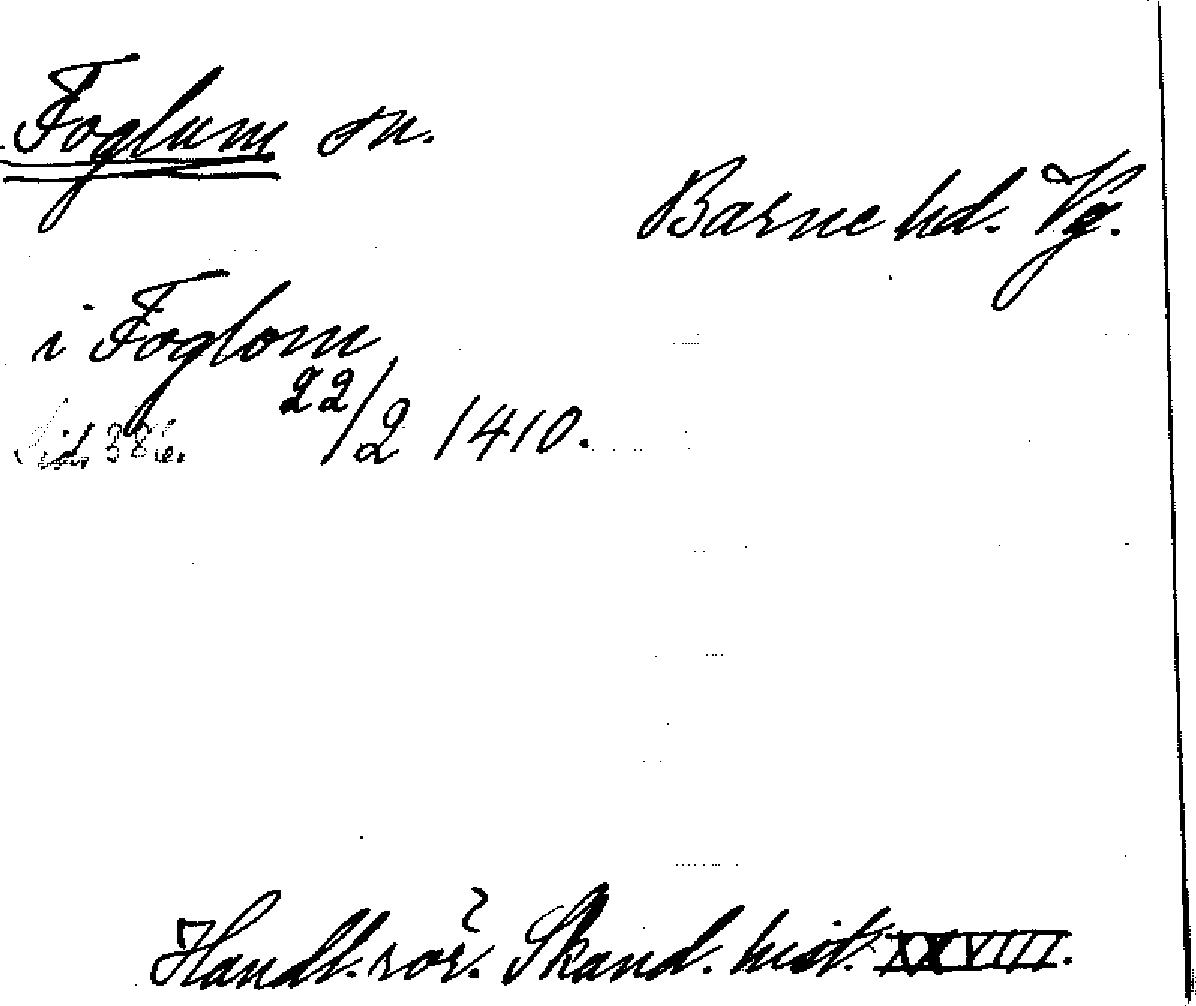 Foglum sn.
Barne hd. Vg.
i Foglom
22/2 1410.
Sid. 386.
Handl. rör. Skand. hist. XXVIII.